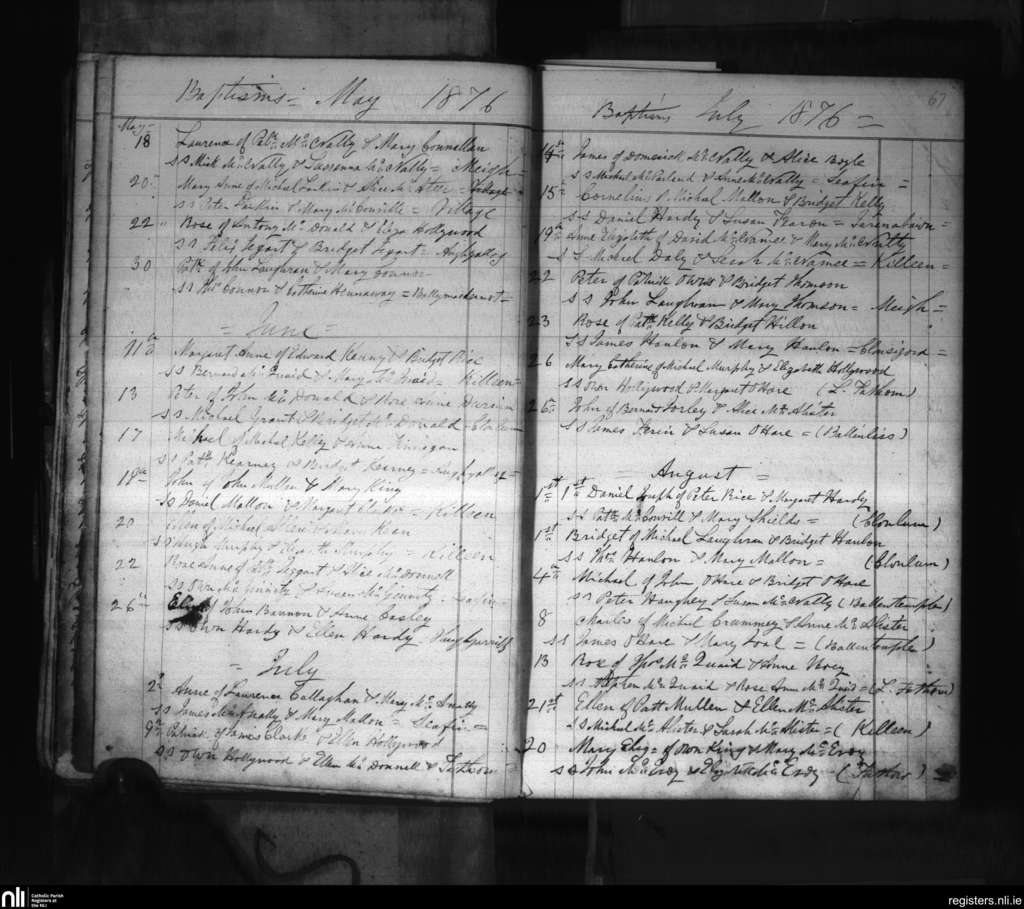 Baptisms = May 1876
May
18 Laurence of Patk. McNally & Mary Connellan
SS Mick McNally & Susanna McNally = Meigh
20 Mary Anne of Michael Larkin & Alice McAtee = Village
SS Peter Larkin & Mary McConville = Village
22 Rose of Antony McDonald & Eliza Hollywood
SS Felix Segart & Bridget Segart =
30 Patk. of John Laughran & Mary Connor
SS Thos Connor & Catherine Hannaway =
= June =
11th Margaret Anne of Edward Kenny & Bridget Rice
SS Bernard McQuaid & Mary McQuaid = Killeen
13 Peter of John McDonald & Rose Anne
SS Michael Grant & Bridget McDonald =
17 Michael of Michel Kelly & Anne Finigan
SS Patk. Kearney & Bridget Kearney =
John of John Mullen & Mary King
SS Daniel Mallon & Margaret = Killeen
20 Ellen of Michael
SS Hugh Murphy & Elizabeth Murphy = Killeen
22 Rose Anne of & Alice McDonnell
SS Own & Susan
26th Eliza of John Bannon & Anne Casley
SS Own Hardy & Ellen Hardy
= July
2d Anne of Laurence Callaghan & Mary McAnally
SS James McAnally & Mary Mallon = Seafin =
9th Patrick of James Clarke & Ellen Hollywood
SS Own Hollywood & Ellen McDonnell = Fathom
67
Baptisms July 1876 =
14th James of Domenick McNally & Alice Boyle
SS Michael McParland & Anne McNally = Seafin =
15 Cornelius of Michael Mallon & Bridget Kelly
SS Daniel Hardy & Susan Fearon =
19th Anne Elizabeth of David & Mary McNulty
SS Michael Daly & Sarah = Killeen =
22 Peter of Patrick Owens & Bridget Thomson
SS John Laughran & Mary Thomson = Meigh =
23 Rose of Patk. Kelly & Bridget Hillon
SS James Hanlon & Mary Hanlon =
26 Mary Catherine of Michel Murphy & Elizabeth Hollywood
SS Own Hollywood & Margaret O'Hare (L. Fathom)
26 John of Bernard Sorley & Alice McAlister
SS James & Susan O'Hare = (Ballinliss)
= August =
1st 1st Daniel Joseph of Peter Rice & Margaret Hardy
SS Patk. McConvill & Mary Shields = (Clonlum)
1st Bridget of Michael Laughran & Bridget Hanlon
SS Thos. Hanlon & Mary Mallon = (Clonlum)
4th Michael of John O'Hare & Bridget O'Hare
SS Peter Haughey & Susan McNally (Ballentemple)
8 Charles of Michael Crummey & Anne McAlister
SS James O'Hare & Mary Toal = (Ballentemple)
13 Rose of Thos. McQuaid & Anne
SS Stephen McQuaid & Rose Ann McQuaid = (L. Fathom)
21st Ellen of Patt Mullen & Ellen McAlister
SS Michael McAlister & Sarah McAlister = (Killeen)
20 Mary Eliza = of Own King & Mary McEvoy
SS John McEvoy & Elizabeth McEvoy (Fathom)
nli Catholic Parish
Registers at
the NLI
registers.nli.ie